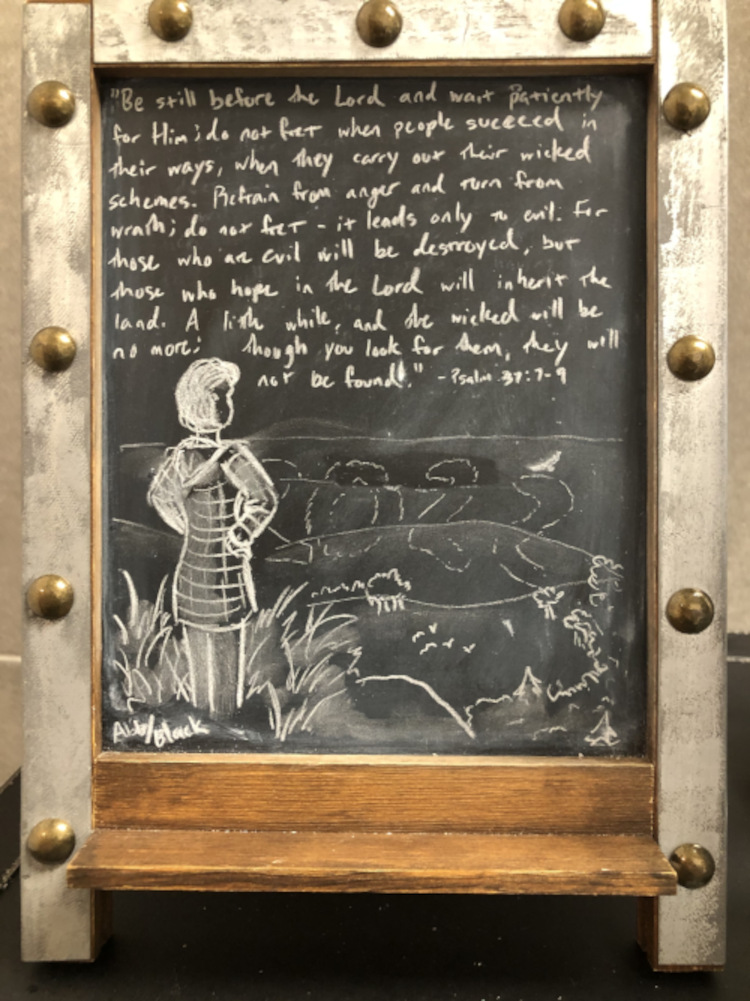 "Be still before the Lord and wait patiently
for Him; do not fret when people succeed in
their ways, when they carry out their wicked
schemes. Refrain from anger and turn from
wrath; do not fret - it leads only to evil. For
those who are evil will be destroyed, but
those who hope in the Lord will inherit the
land. A little while, and the wicked will be
no more; though you look for them, they will
not be found." - Psalm 37:7-9
Black